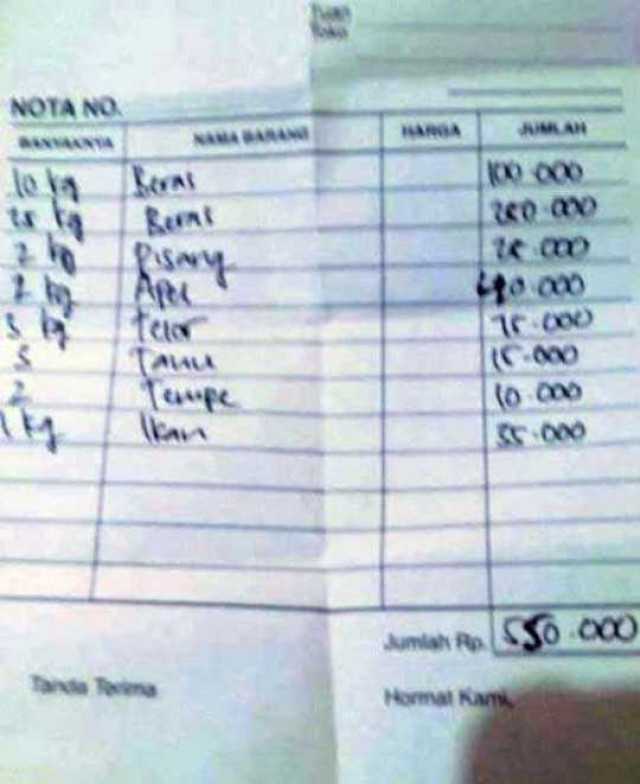 Tuan
Toko
NOTA NO.
BANYAKNYA NAMA BARANG HARGA JUMLAH
10 kg Beras 100.000
25 kg Beras 250.000
2 kg Pisang 25.000
2 kg Apel 40.000
3 kg Telor 75.000
3 Tahu 15.000
2 Tempe 10.000
1 kg Ikan 35.000
Jumlah Rp. 550.000
Tanda Terima Hormat Kami,